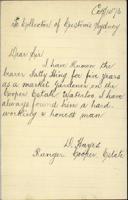 To Collector of Customs Sydney
Dear Sir
I have known the
bearer Sitty Hing for five years
as a market Gardener on the
Cooper Estate Waterloo I have
always found him a hard
working & honest man
D. Hayes
Ranger Cooper Estate